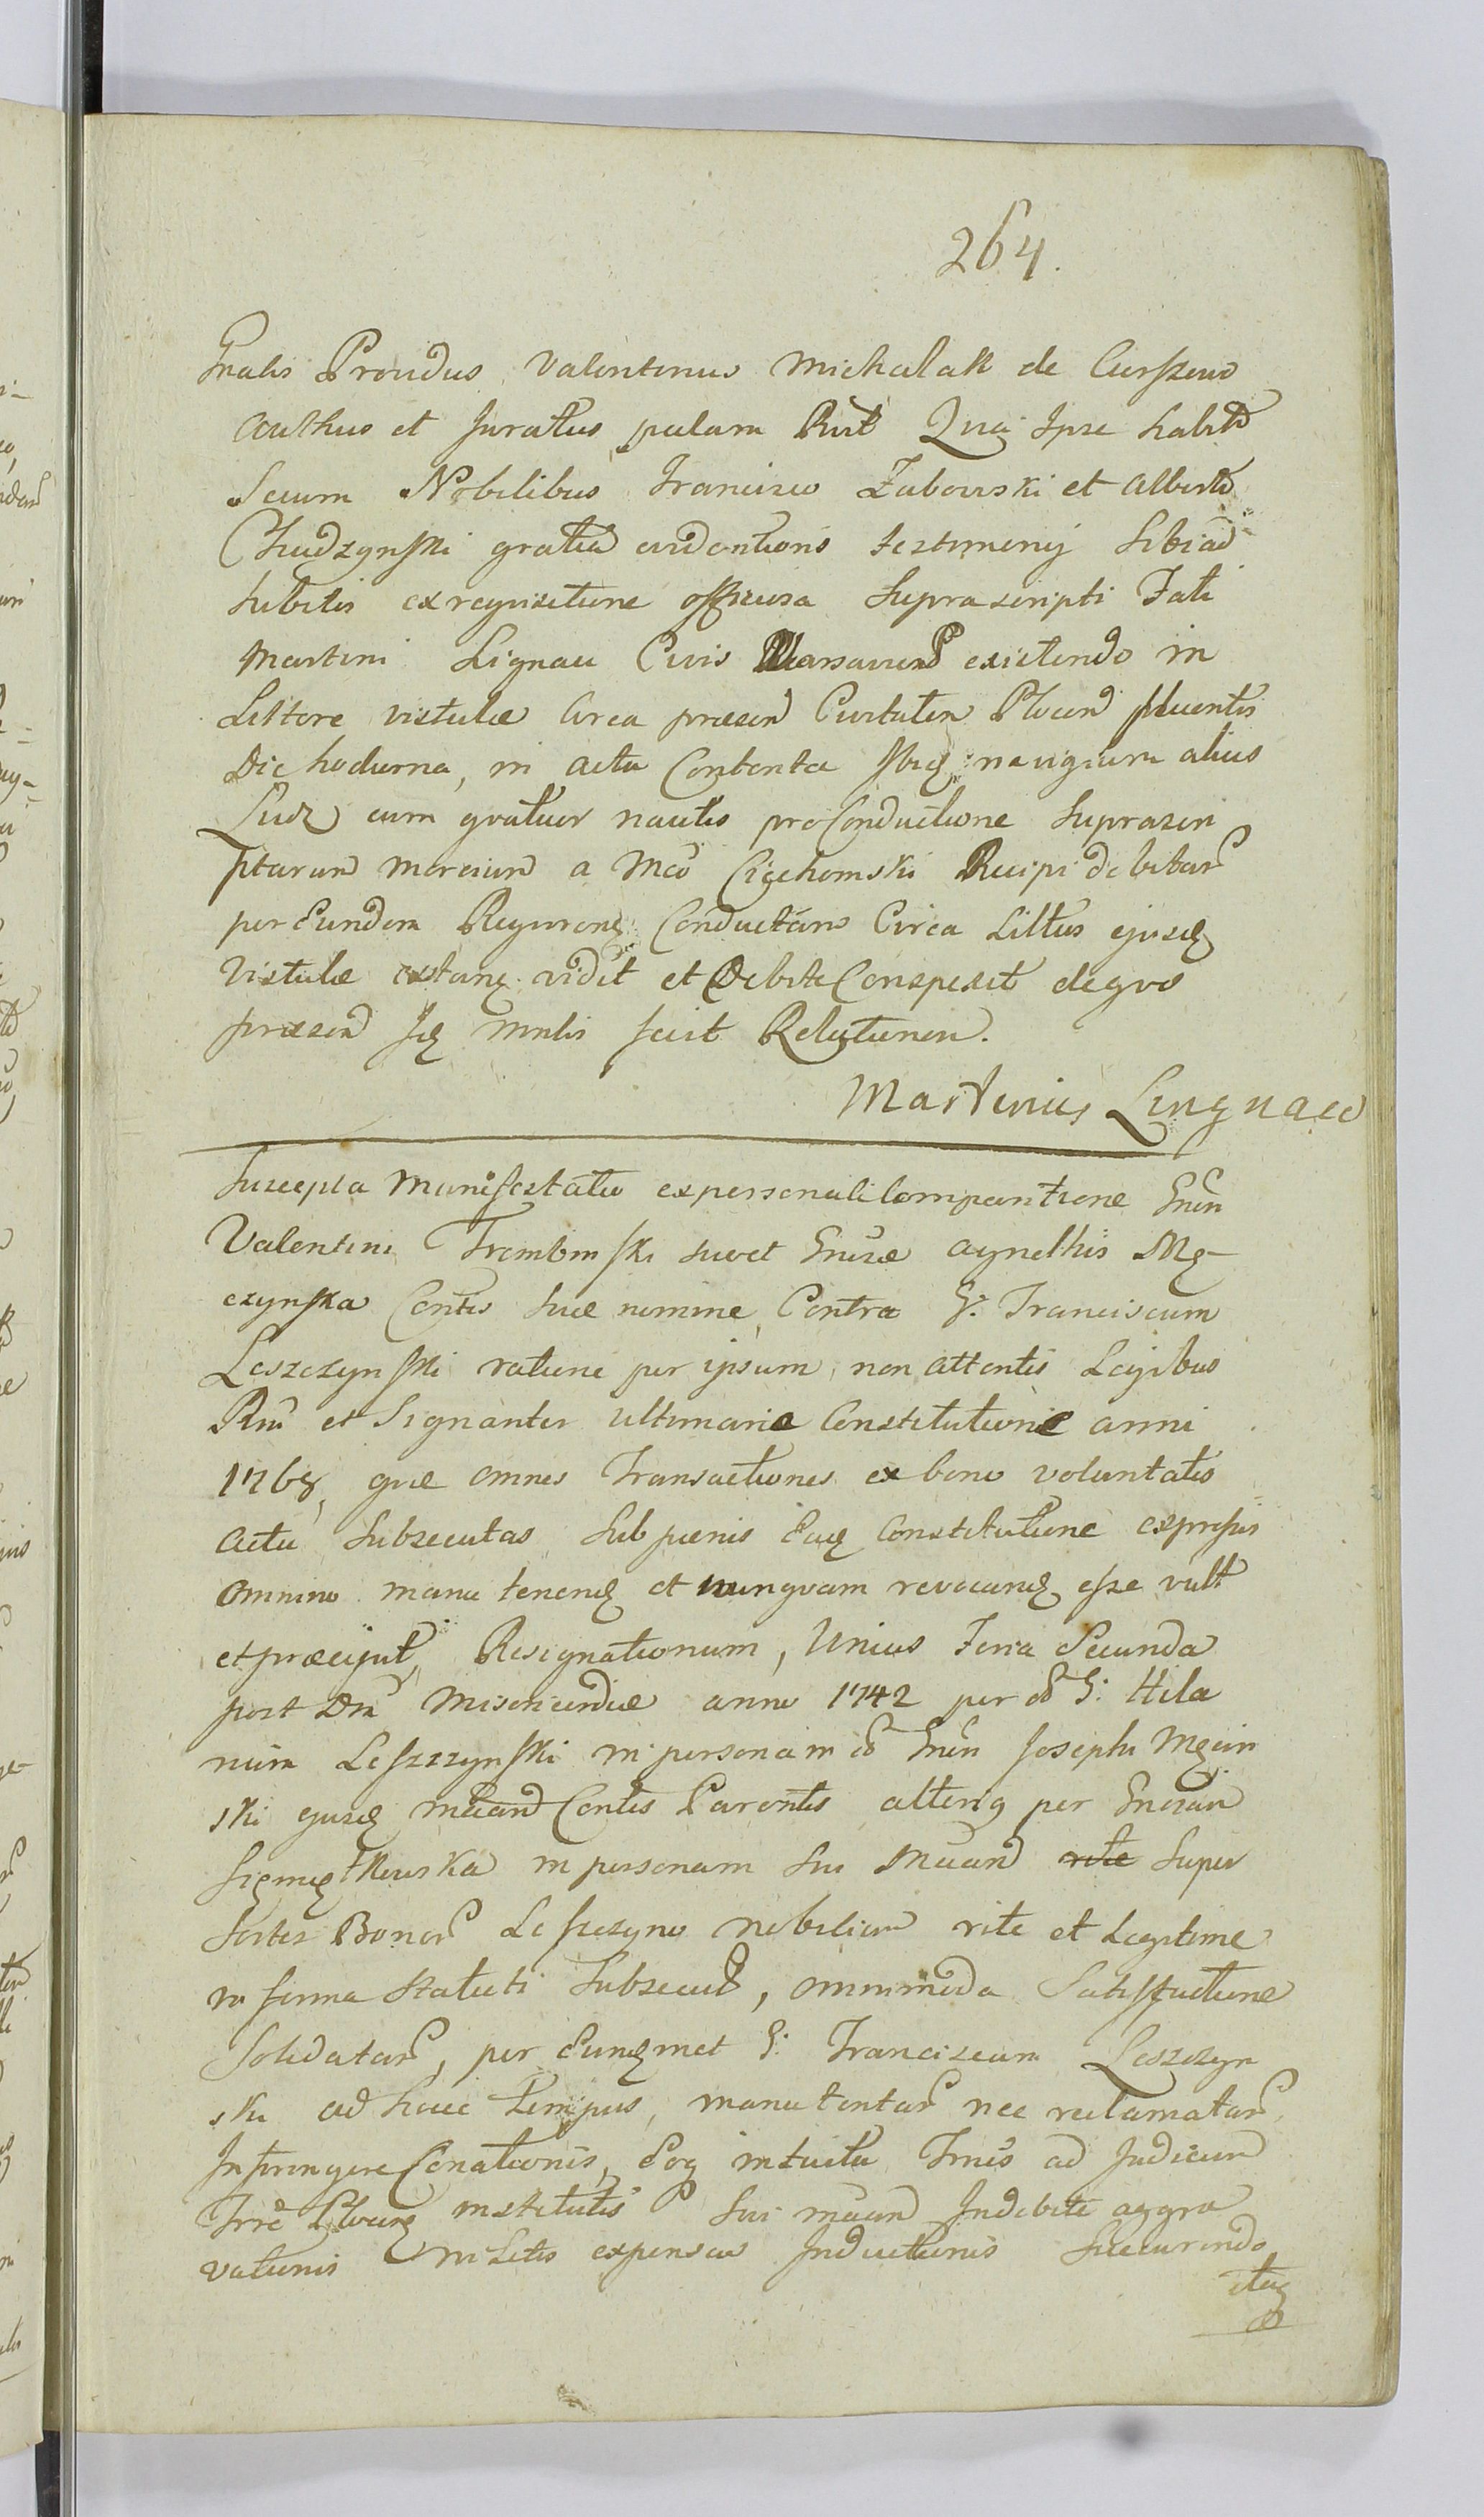 264.
Gnalis Providus Valentinus Michalak de Curszewo
authus et Juratus palam Rvit Quia Ipse habitis
Secum Nobilibus Francisco Zabowski et Alberto
Chudzynski gratia evidentioris testimonij Sibi ad
hibitis ex requisitione officiosa Suprascripti Fati
Martini Lignau Civis Warsavien existendo in
Littore vistulæ Circa præsen Civitatem Plocen fluentis
Die hodierna, in actu Contenta navigium alias
cum quatuor nautis pro Conductione Suprascri
ptarum mercium a Mco Cichomski Recipi debitar
per Eundem Conductam Circa Littus ejusd
Vistulæ extan vidit et Debite Conspexit de quo
præsen fecit Relationem.
Martinus Lingnau
Suscepta Manifestatio ex personali Comparitione Gnsi
Valentini Trembinski suo et Gnsæ Agnethis Mę
czynska Contis Suæ nomine, Contra G: Franciscum
Leszczynski ratione per ipsum, non attentis Legibus
Rni et Signanter ultimaria Constitutione anni
1768, quæ omnes Transactiones ex bono voluntatis
actu Subsecutas Sub pœnis Eaq Constitutione expressis
omnino manu tenend et nunquam revocand esse vult
et præcipit, Resignationum, Unius Feria Secunda
post Dm Misericordiæ anno 1742 per G: Hila
rium Leszczynski in personam Gnsi Josephi Męcin
ski ejusd Mand Contis Parentis alteriq per Gnosam
in personam Sui Mand rite Super
Sortes Bonor Leszczyno nobilium rite et Legitime
in forma Statuti Subsecut, omnimoda Satisfactione
Solidatar, per Eundmet G: Franciscum Leszczyn
ski ad hocce tempus, manutentar nec reclamatar,
Infringere Conationis, Eoq intuitu Tmis ad Judicium
Trre Plocen institutis Sui mand Indebite aggra
vationis in Litis expensas Inductionis Succurendo
itaq